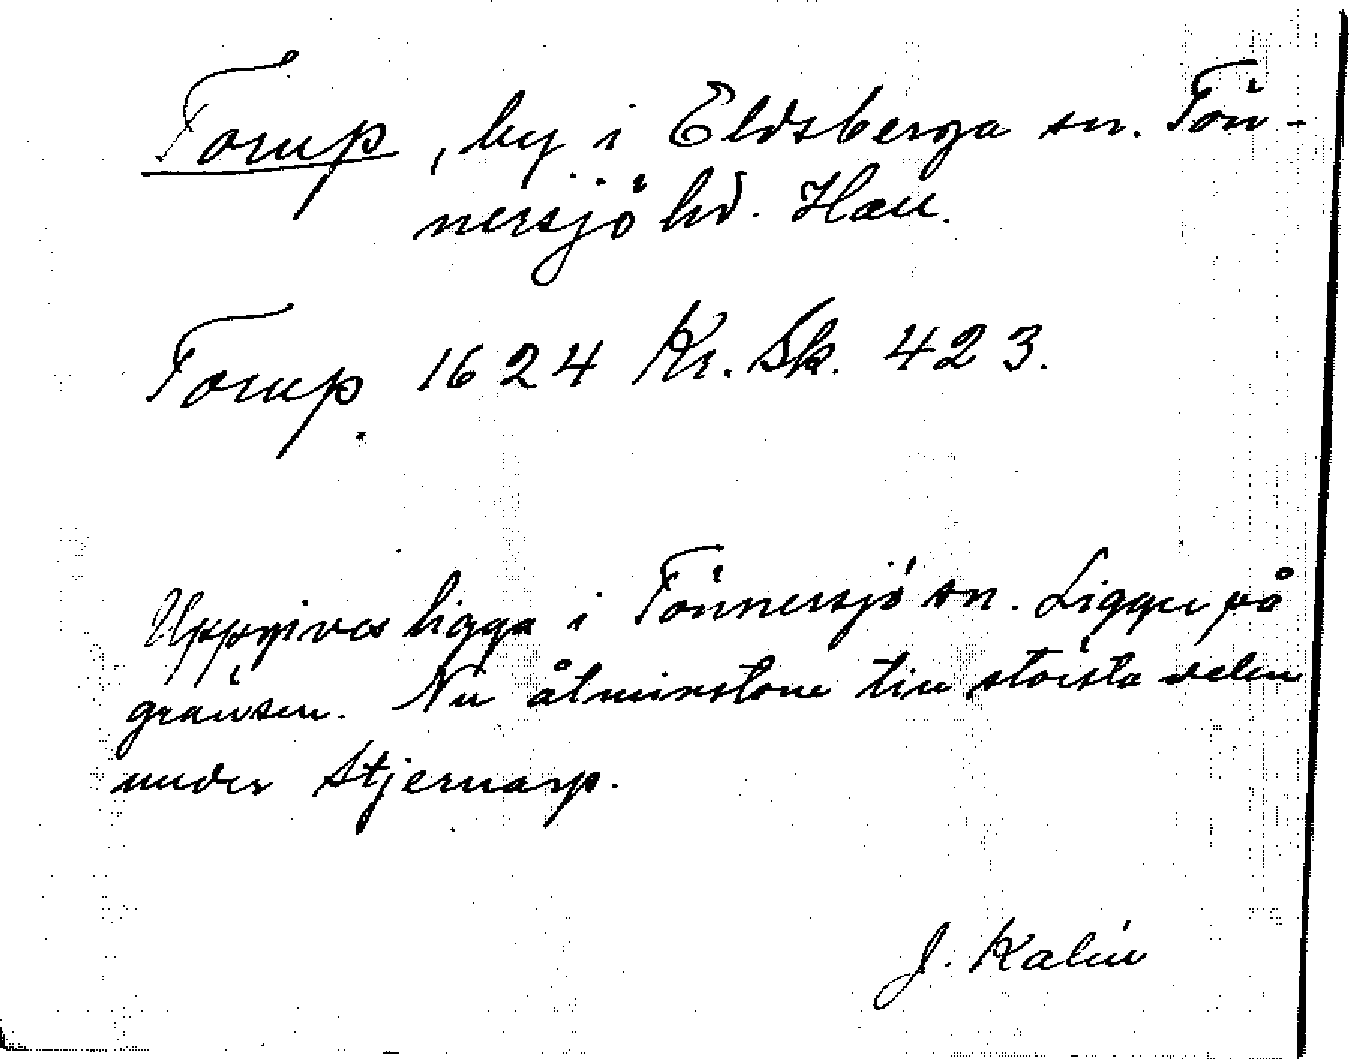 Torup, by i Eldsberga sn. Tön-
nersjö hd. Hall.
Torup 1624 Kr. Sk. 423.
Uppgives ligga i Tönnersjö sn. Ligger på
gränsen. Nu åtminstone till största delen
under Stjernarp.
J. Kalén